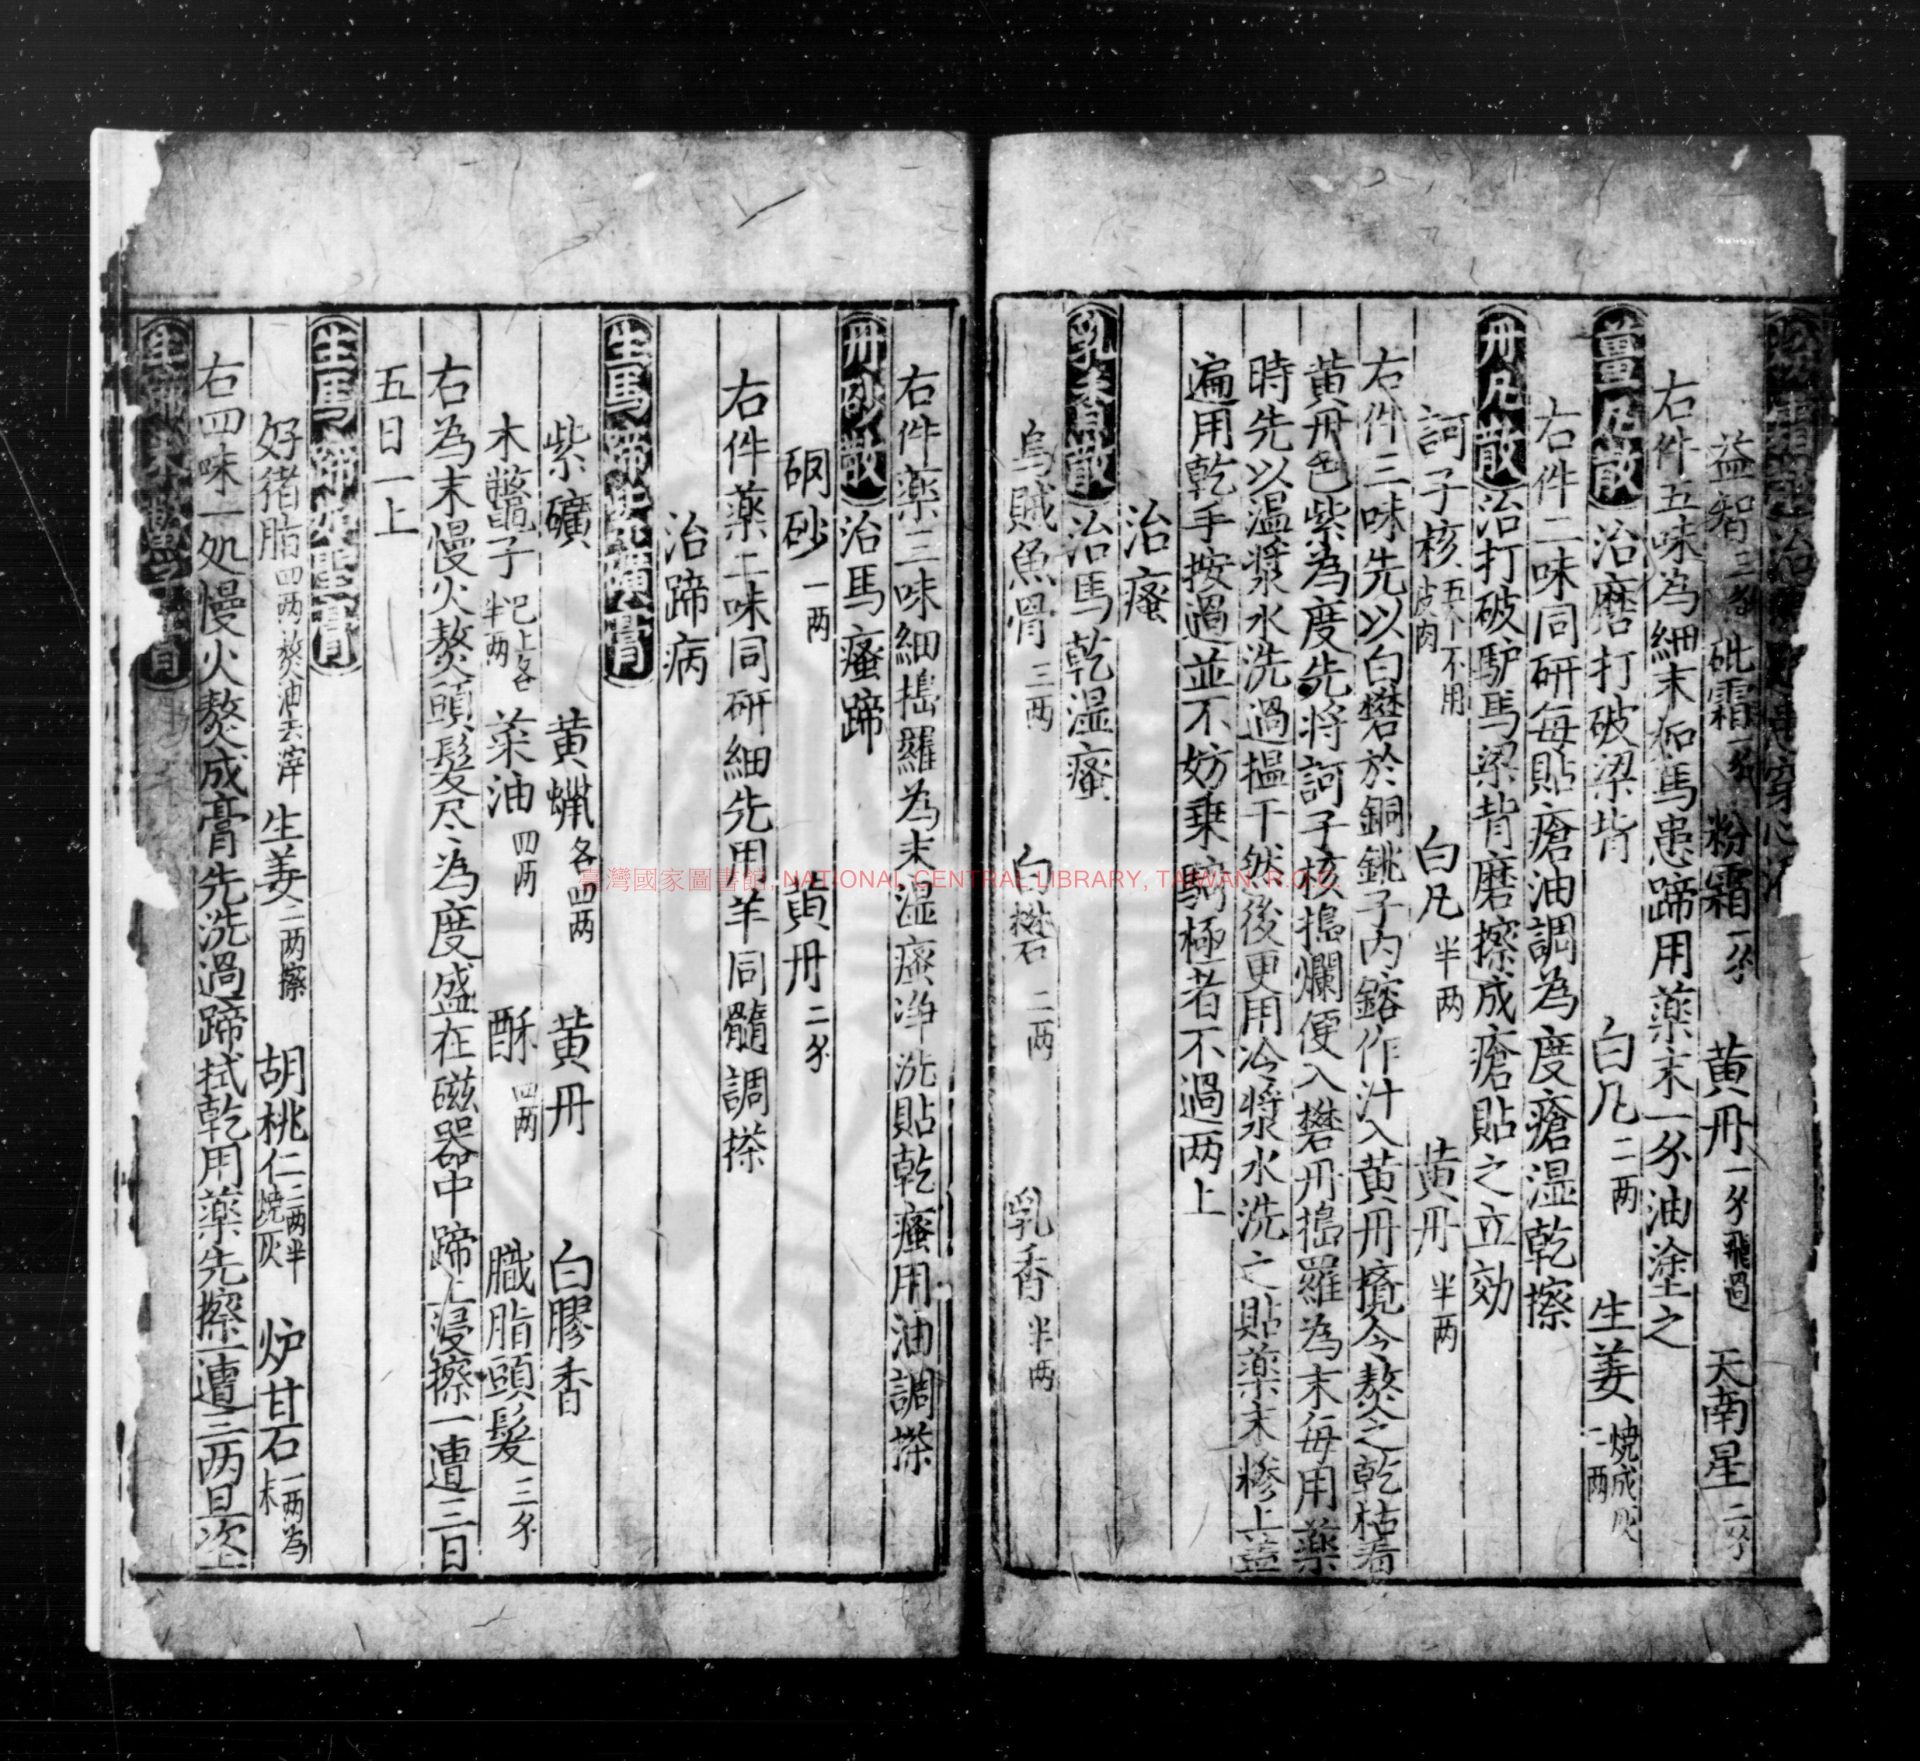 治
益智三分 砒霜一分 粉霜一分 黄丹一分飛過 天南星二分
右件五味為細末如馬患蹄用薬末一分油塗之
薑凡散 治磨打破梁背 白凡二两 生姜一两燒成灰
右件二味同研每貼瘡油調為度瘡湿乾擦
丹凡散 治打破馿馬梁背磨擦成瘡貼之立効
訶子核五个不用皮肉 白凡半两 黄丹半两
右件三味先以白礬於銅銚子内鎔作汁入黄丹攪令熬之乾枯看
黄丹色紫為度先将訶子核搗爛便入礬丹搗羅為末每用薬
時先以温漿水洗過揾干然後更用冷漿水洗之貼薬末糝上蓋
遍用乾手按過並不妨乗騎極者不過两上
治瘙
乳香散 治馬乾湿瘙
烏賊魚骨三两 白礬二两 乳香半两
右件薬三味細搗羅為末湿瘙净洗貼乾瘙用油調搽
丹砂散 治馬瘙蹄
硇砂一两 黄丹二分
右件薬二味同研細先用羊同髓調搽
治蹄病
生馬蹄紫礦膏
紫礦 黄蝋各四两 黄丹 白膠香
木鱉子巳上各半两 菜油四两 酥四两 臈脂頭髮三分
右為末慢火熬頭髮尽為度盛在磁器中蹄上浸擦一遭三日
五日一上
生馬蹄
好猪脂四两熬油去滓 生姜二两擦 胡桃仁二两半燒灰 炉甘石一两為末
右四味一处慢火熬成膏先洗過蹄拭乾用薬先擦一遭三两日
臺灣國家圖書館, NATIONAL CENTRAL LIBRARY, TAIWAN, R.O.C.